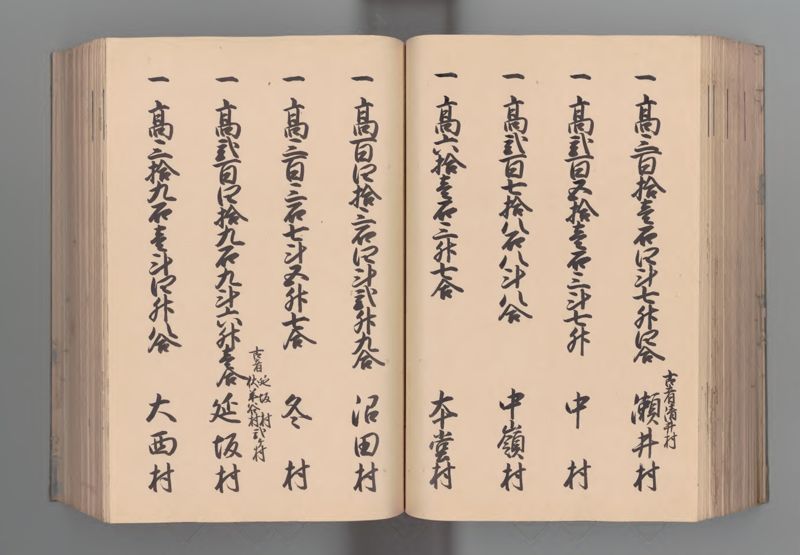 一 高三百拾壱石四斗七升四合
古者清井村
瀬井村
一 高弐百五拾壱石三斗七升 中村
一 高弐百七拾八石八斗八合 中嶺村
一 高六拾壱石三升七合 本堂村
一 高百四拾三石四斗弐升九合 沼田村
一 高三百三石七斗五升七合 冬村
一 高弐百四拾九石九斗六升壱合
古者延坂村
村弐ヶ村
延坂村
一 高三拾九石壱斗四升八合 大西村